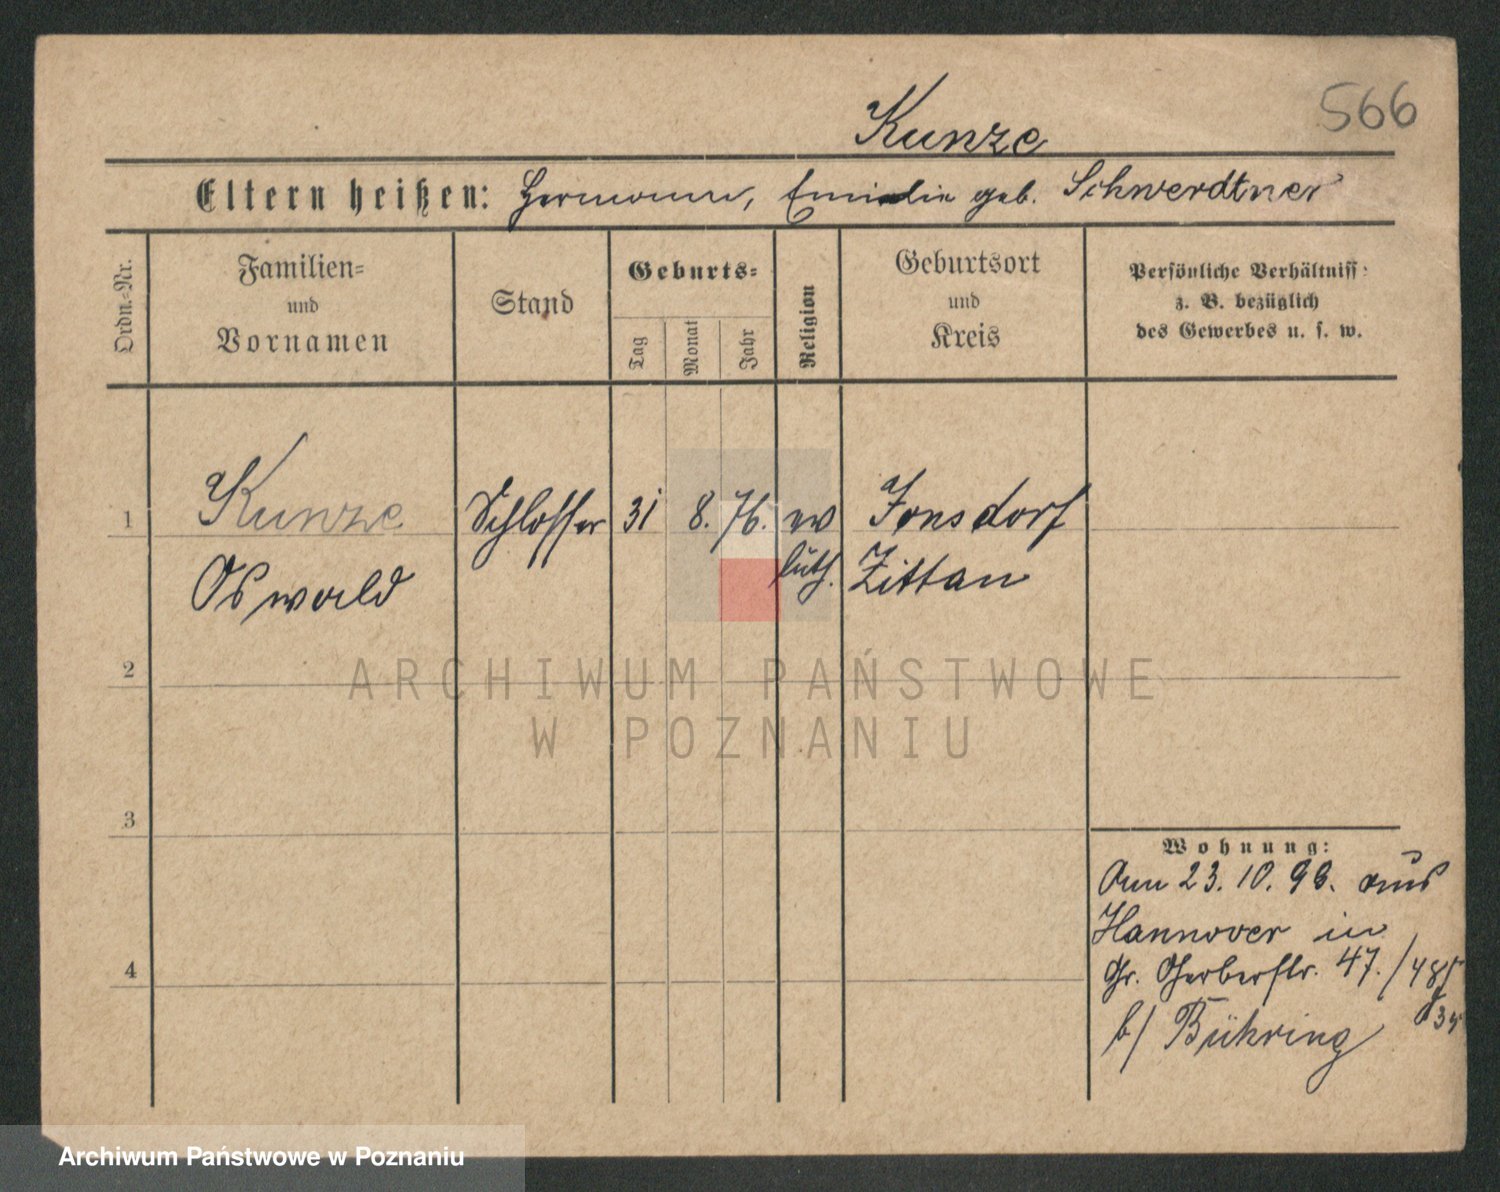 566
Kunze
Eltern heißen: Hermann, Emilie geb. Schwerdtner
Ordn.-Nr.
Familien-
und
Vornamen
Stand
Geburts-
Tag
Monat
Jahr
Religion
Geburtsort
und
Kreis
Persönliche Verhältniss
z. B. bezüglich
des Gewerbes u. s. w.
1 Kunze Schlosser 31 8. 76. ev Jonsdorf
Oswald luth. Zittau
2
ARCHIWUM PAŃSTWOWE
W POZNANIU
3
Wohnung:
Am 23. 10. 96. aus
Hannover in
4
Gr. Gerberstr. 47. /
b/ Bühring
Archiwum Państwowe w Poznaniu